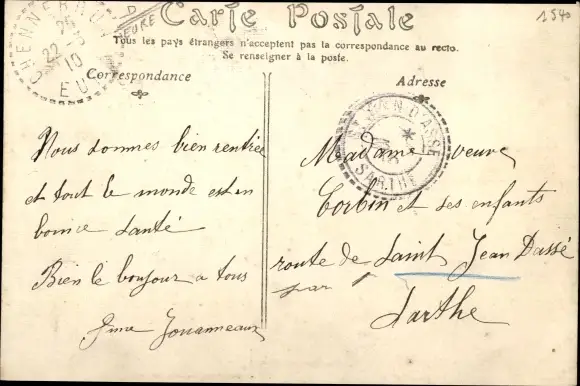 1540
Carte Postale
Tous les pays étrangers n'acceptent pas la correspondance au recto.
Se renseigner à la poste.
Correspondance
Nous sommes bien rentrée
et tout le monde est en
bonne santé
Bien le bonjour a tous
Jouanneaux
Adresse
Madame veuve
Corbin et ses enfants
route de Saint Jean Dassé
par
Sarthe
CHENNEBRUN
22
10
EURE
ST JEAN D'ASSÉ
SARTHE